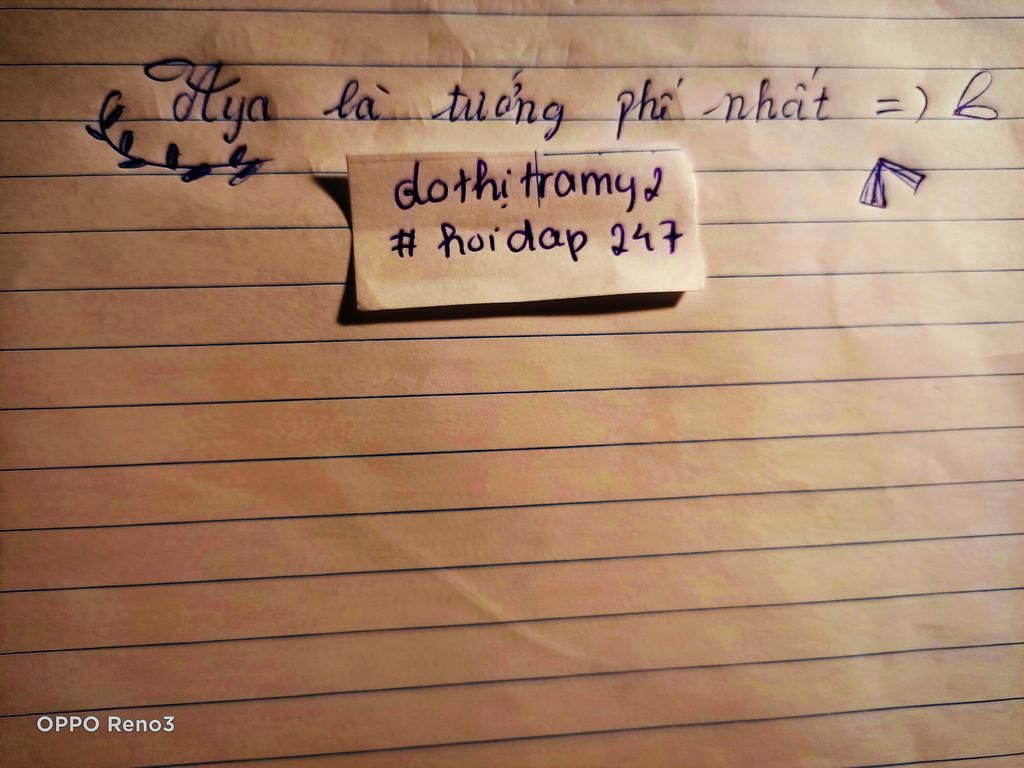 Aya là tướng phế nhất => B
dothịtramy2
# hoidap 247
OPPO Reno3